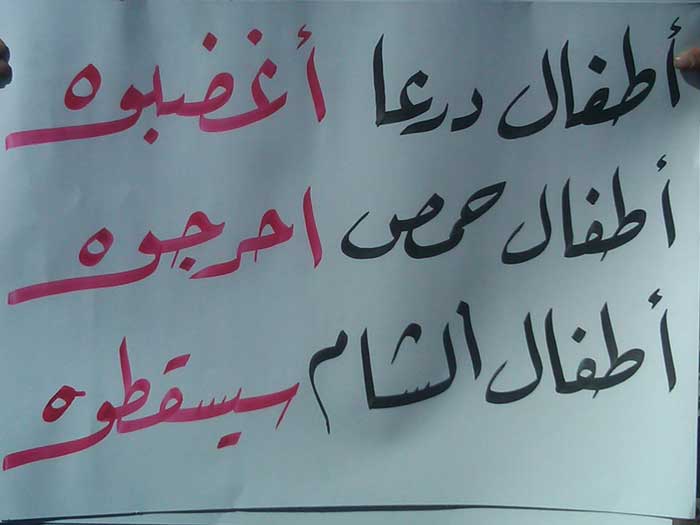 أطفال درعا أغضبوه
أطفال حمص احرجوه
أطفال الشام سيسقطوه